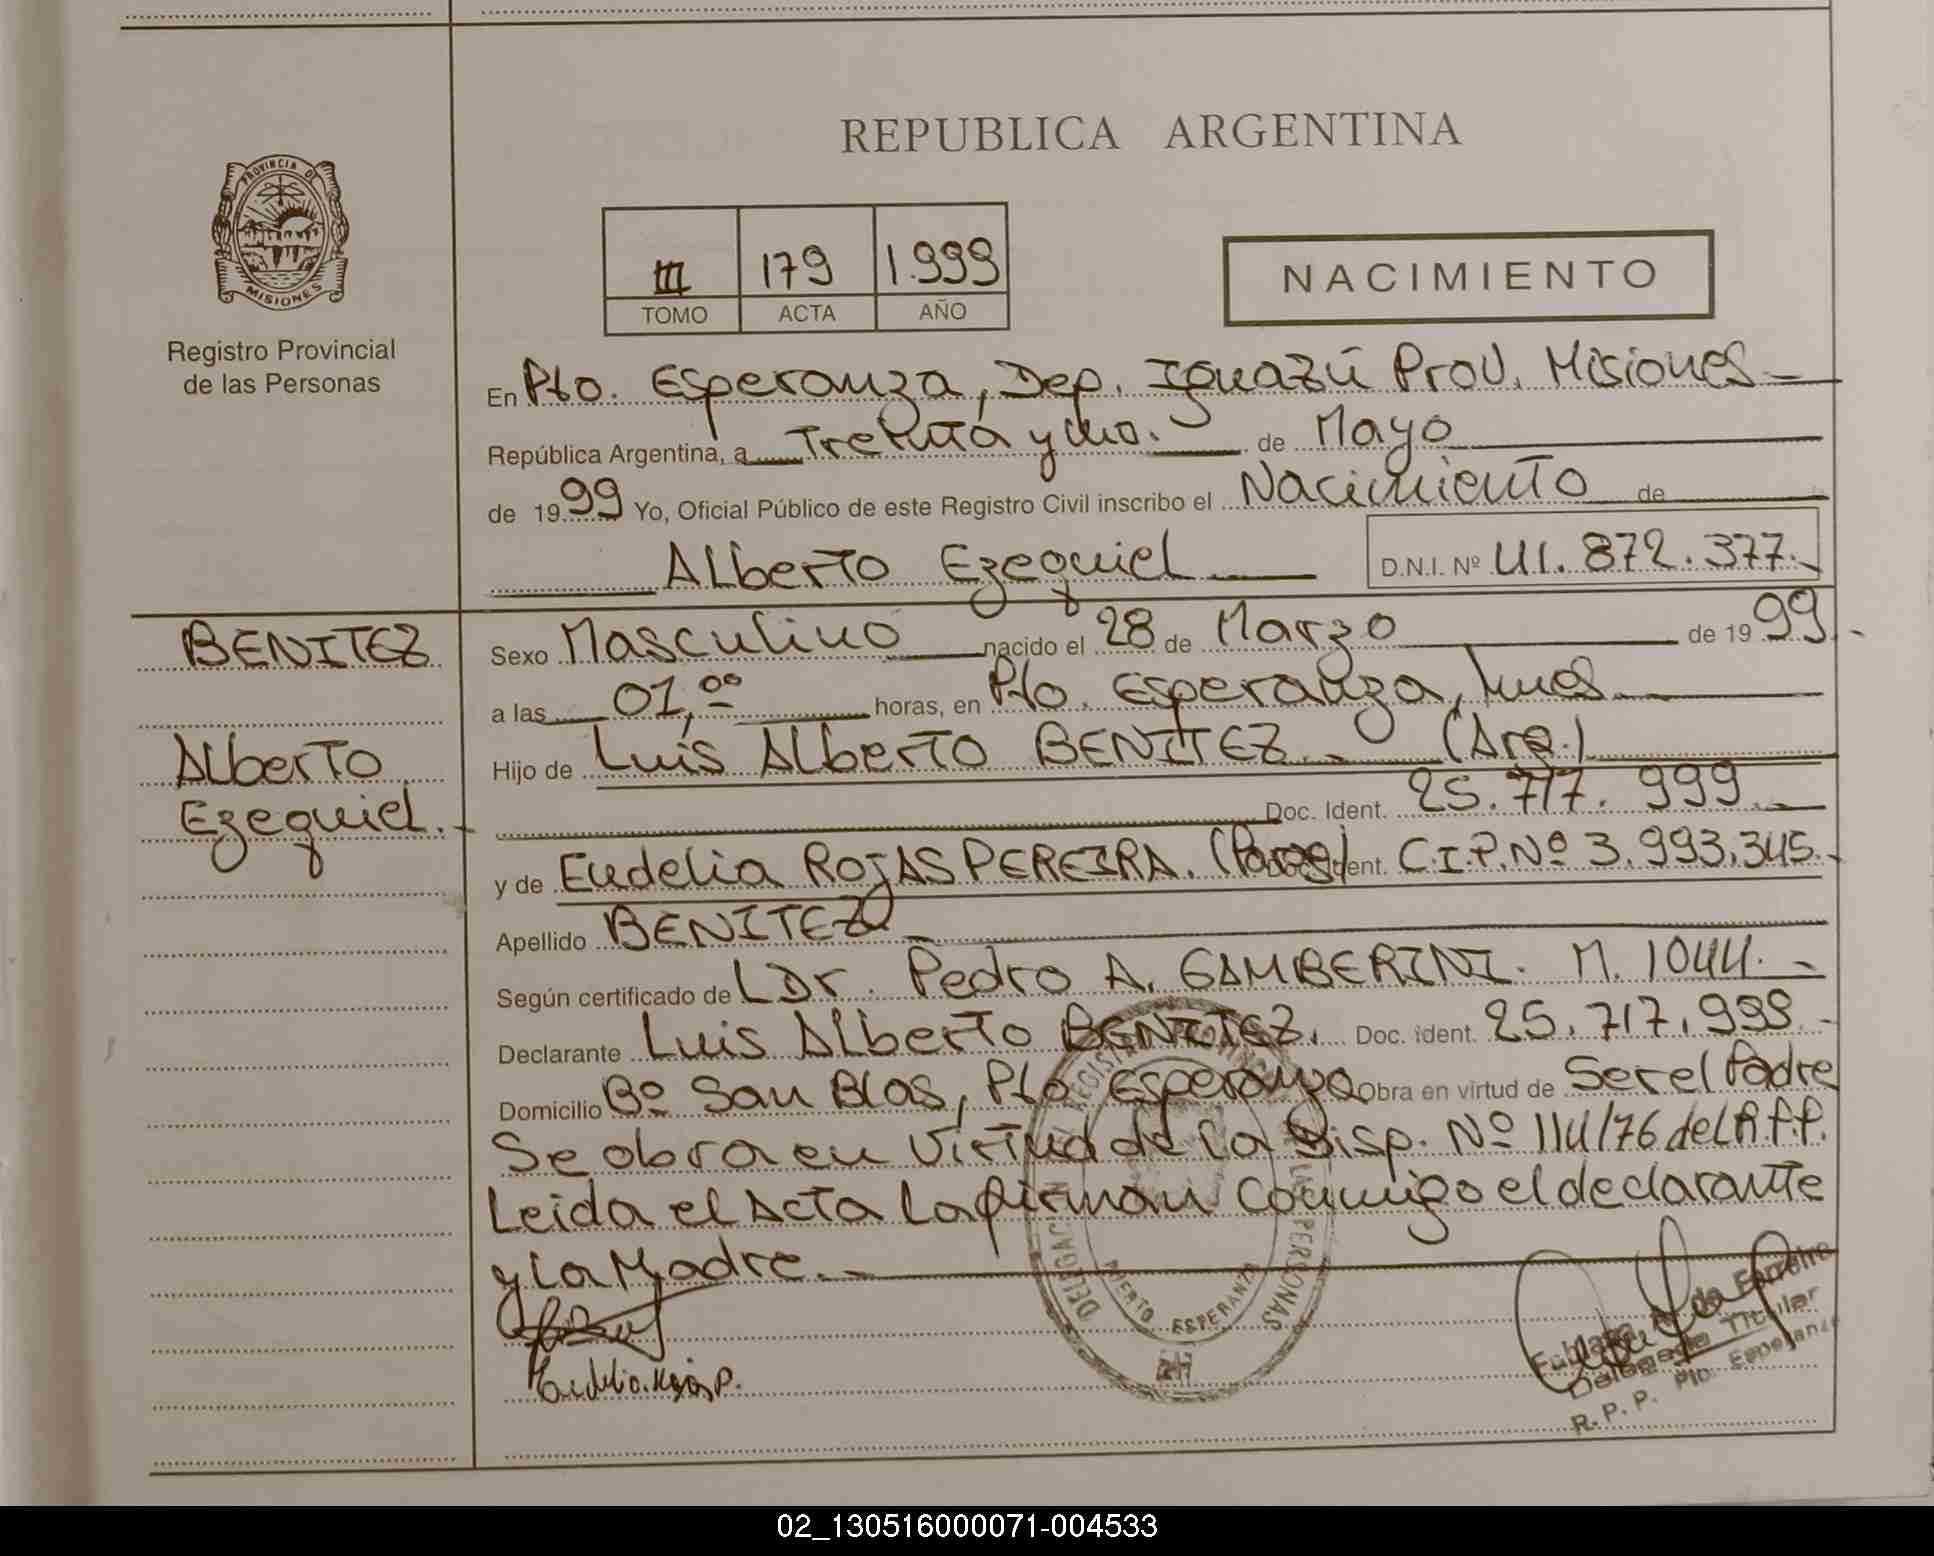 REPUBLICA ARGENTINA
PROVINCIA DE
MISIONES
Registro Provincial
de las Personas
III 179 1.999
TOMO ACTA AÑO
NACIMIENTO
En Pto. Esperanza, Dep. Iguazú Prov. Misiones
República Argentina, a Treinta y uno. de Mayo
de 1999 Yo, Oficial Público de este Registro Civil inscribo el Nacimiento de
Alberto Ezequiel D.N.I. Nº 41.872.377.
BENITEZ
Alberto
Ezequiel.
Sexo Masculino nacido el 28 de Marzo de 1999
a las 01,00 horas, en Pto. Esperanza, Mnes
Hijo de Luis Alberto BENITEZ (Arg.)
Doc. Ident. 25.717.999
y de Eudelia ROJAS PEREIRA. (Parag) Doc. Ident. C.I.P.Nº 3.993.345.
Apellido BENITEZ
Según certificado de L Dr. Pedro A. GAMBERINI. M. 1044.
Declarante Luis Alberto BENITEZ. Doc. ident. 25.717.999
Domicilio Bº San Blas, Pto Esperanza Obra en virtud de Ser el Padre
Se obra en virtud de la Disp. Nº 114/76 del R.P.P.
Leida el Acta la firman conmigo el declarante
y la Madre.
Eudelia Rojas P.
PUERTO ESPERANZA
PERSONAS
Delegada Titular
R. P. P. Pto. Esperanza
02_130516000071-004533